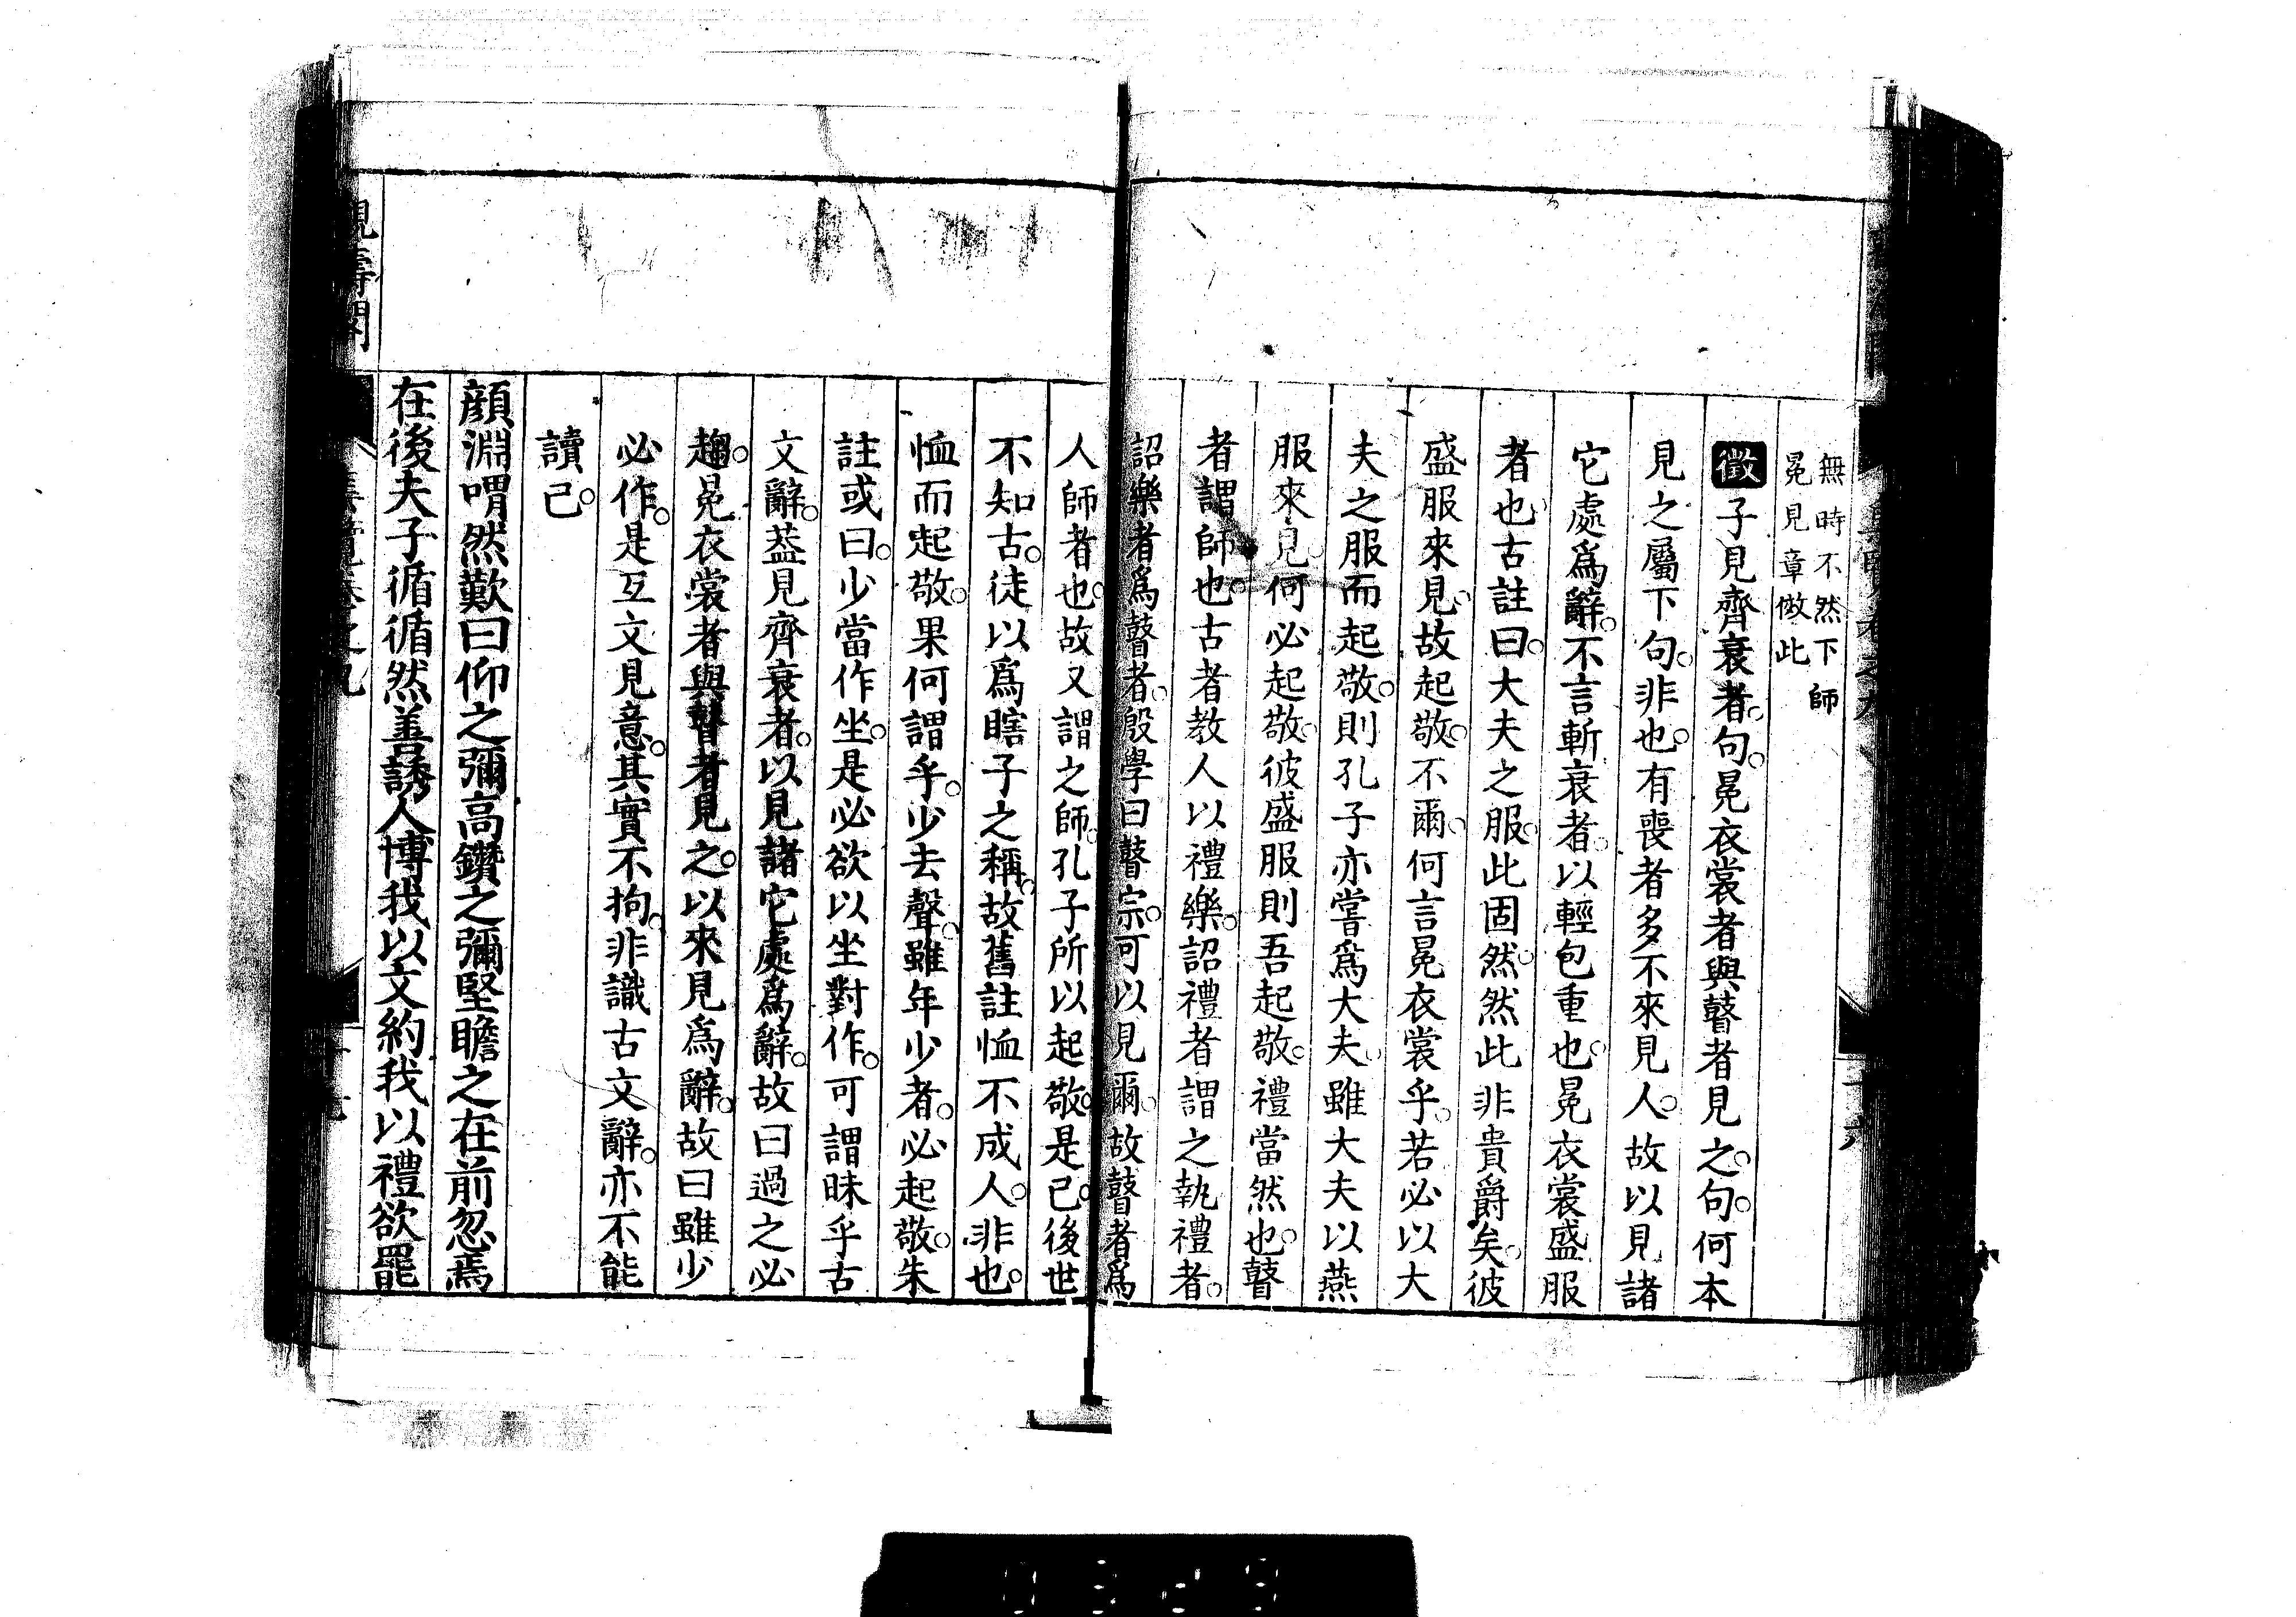 無時不然下師
冕見章倣此
徵子見齊衰者。句。冕衣裳者與瞽者見之。句。何本
見之屬下句。非也。有喪者多不來見人。故以見諸
它處爲辭。不言斬衰者。以輕包重也。冕衣裳盛服
者也。古註曰。大夫之服。此固然。然此非貴爵矣。彼
盛服來見。故起敬。不爾。何言冕衣裳乎。若必以大
夫之服而起敬。則孔子亦嘗爲大夫。雖大夫以燕
服來見。何必起敬。彼盛服則吾起敬。禮當然也。瞽
者謂師也。古者教人以禮樂。詔禮者謂之執禮者。
詔樂者爲瞽者。殷學曰瞽宗。可以見爾。故瞽者爲
人師者也。故又謂之師。孔子所以起敬。是已。後世
不知古。徒以爲瞎子之稱。故舊註恤不成人。非也。
恤而起敬。果何謂乎。少去聲。雖年少者。必起敬。朱
註或曰。少當作坐。是必欲以坐對作。可謂昧乎古
文辭。葢見齊衰者。以見諸它處爲辭。故曰過之必
趨。冕衣裳者與瞽者見之。以來見爲辭。故曰雖少
必作。是互文見意。其實不拘。非識古文辭。亦不能
讀已。
顏淵喟然歎曰仰之彌高鑽之彌堅瞻之在前忽焉
在後夫子循循然善誘人博我以文約我以禮欲罷
觀濤閣